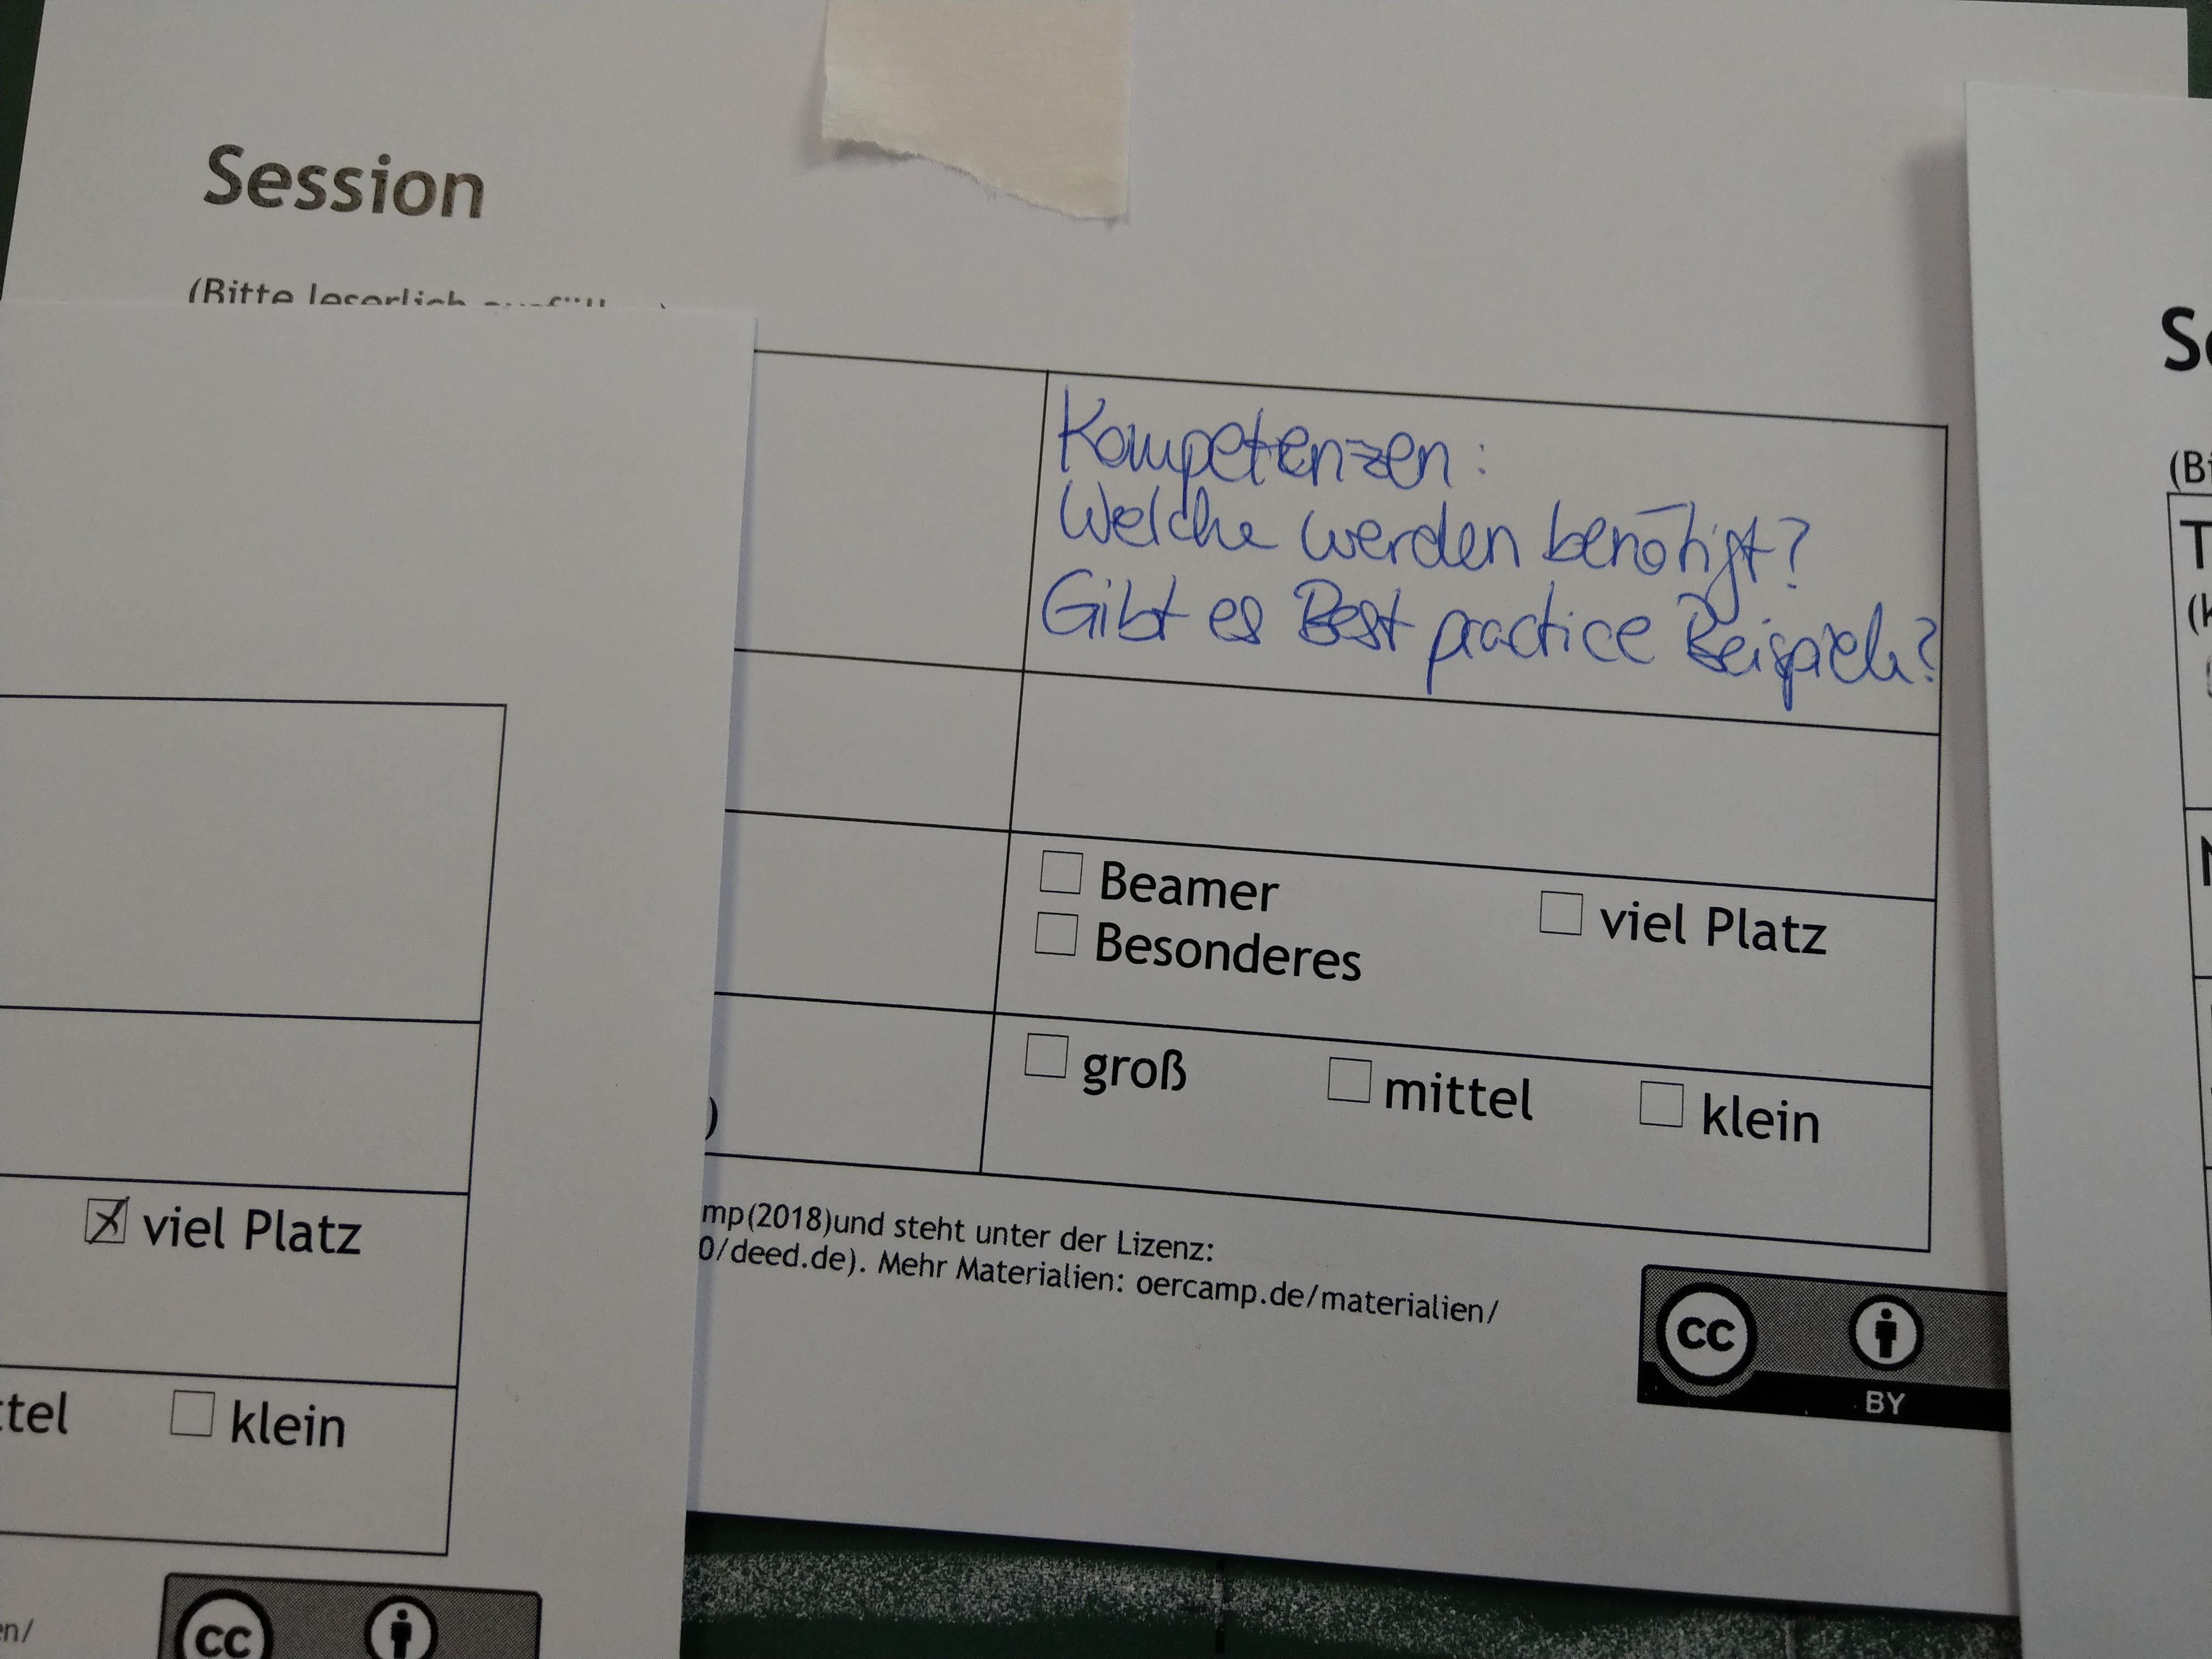 Session
(Bitte leserlich
Kompetenzen:
Welche werden benötigt?
Gibt es Best practice Beispiele?
Beamer
viel Platz
Besonderes
groß
mittel
klein
)
mp(2018)und steht unter der Lizenz:
0/deed.de). Mehr Materialien: oercamp.de/materialien/
cc
BY
viel Platz
ttel
klein
en/
cc
(Bi
T
(K